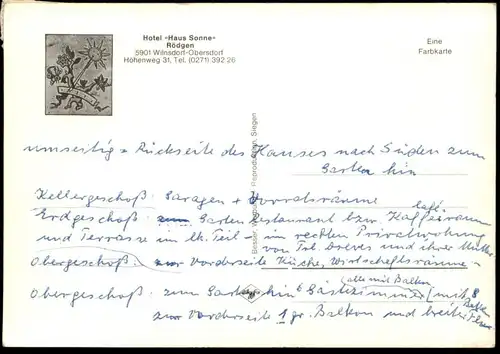 Hotel »Haus Sonne«
Rödgen
5901 Wilnsdorf-Obersdorf
Höhenweg 31, Tel. (0271) 392 26
Eine
Farbkarte
umseitig = Rückseite des Hauses nach Süden zum
Garten hin
Kellergeschoß: Garagen + Vorratsräume
Café
Erdgeschoß: zum Garten Restaurant bzw. Kaffeeraum
und Terrasse im lk. Teil - im rechten Privatwohnung
von Frl. Dreves und ihrer Mutter
Obergeschoß: zur Vorderseite Küche, Wirtschaftsräume
(alle mit Balkon
Obergeschoß: zum Garten hin 6 Gästezimmer (mit 8
Betten
zur Vorderseite 1 gr. Balkon und breiter